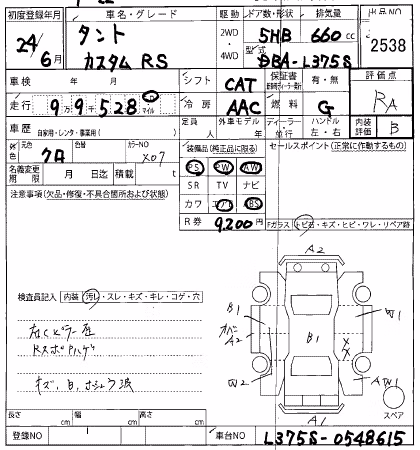 初度登録年月 車名・グレード 駆動 ドア数・形状 排気量 出品NO
24/6月 タント 2WD・4WD 5HB 660cc 2538
カスタム RS 型式 DBA-L375S
車検 年 月 シフト CAT 保証書 有・無 評価点
走行 99528 マイル 冷房 AAC 燃料 G RA
車歴 自家用・レンタ・事業用( ) 定員 人 外車モデル ディーラー・並行 ハンドル 左・右 内装評価 B
外色 元色 クロ 色替 カラーNO X07
装備品(純正品に限る) セールスポイント(正常に作動するもの)
PS PW AW
名義変更期限 月 日迄 積載 t
SR TV ナビ
注意事項(欠品・修復・不具合箇所および状態)
カワ エアB ABS
R券 9,200円
Fガラス トビ石・キズ・ヒビ・ワレ・リペア跡
A2
検査員記入 内装 汚レ・スレ・キズ・キレ・コゲ・穴
B1 W1
A2 B1
右Cピラー歪
W2 A W1
キズ、凹、
スペア
A1
長さ cm 幅 cm 高さ cm
登録NO 車台NO L375S-0548615